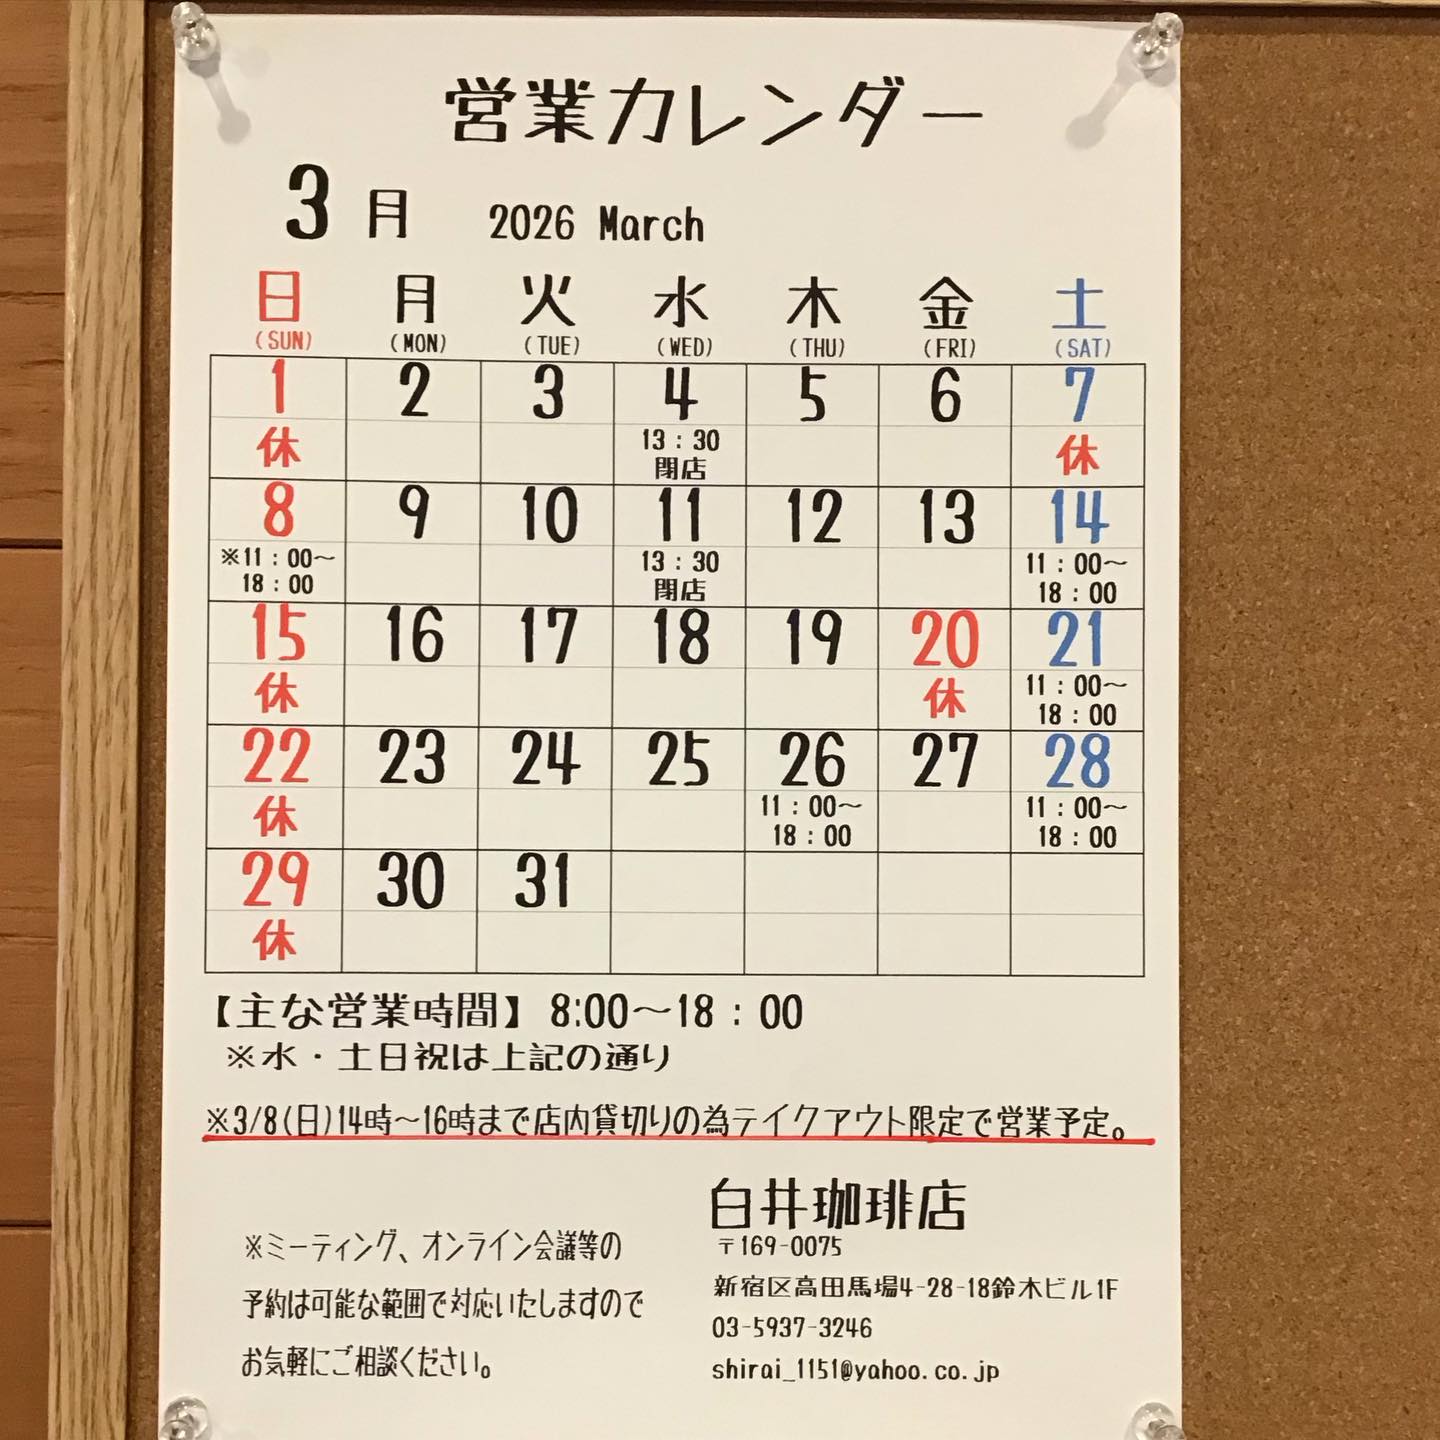 営業カレンダー
3月 2026 March
日 月 火 水 木 金 土
(SUN) (MON) (TUE) (WED) (THU) (FRI) (SAT)
1 2 3 4 5 6 7
休 13:30 休
閉店
8 9 10 11 12 13 14
※11:00～ 13:30 11:00～
18:00 閉店 18:00
15 16 17 18 19 20 21
休 休 11:00～
18:00
22 23 24 25 26 27 28
休 11:00～ 11:00～
18:00 18:00
29 30 31
休
【主な営業時間】 8:00～18:00
※水・土日祝は上記の通り
※3/8(日)14時～16時まで店内貸切りの為テイクアウト限定で営業予定。
※ミーティング、オンライン会議等の
予約は可能な範囲で対応いたしますので
お気軽にご相談ください。
白井珈琲店
〒169-0075
新宿区高田馬場4-28-18鈴木ビル1F
03-5937-3246
shirai_1151@yahoo.co.jp